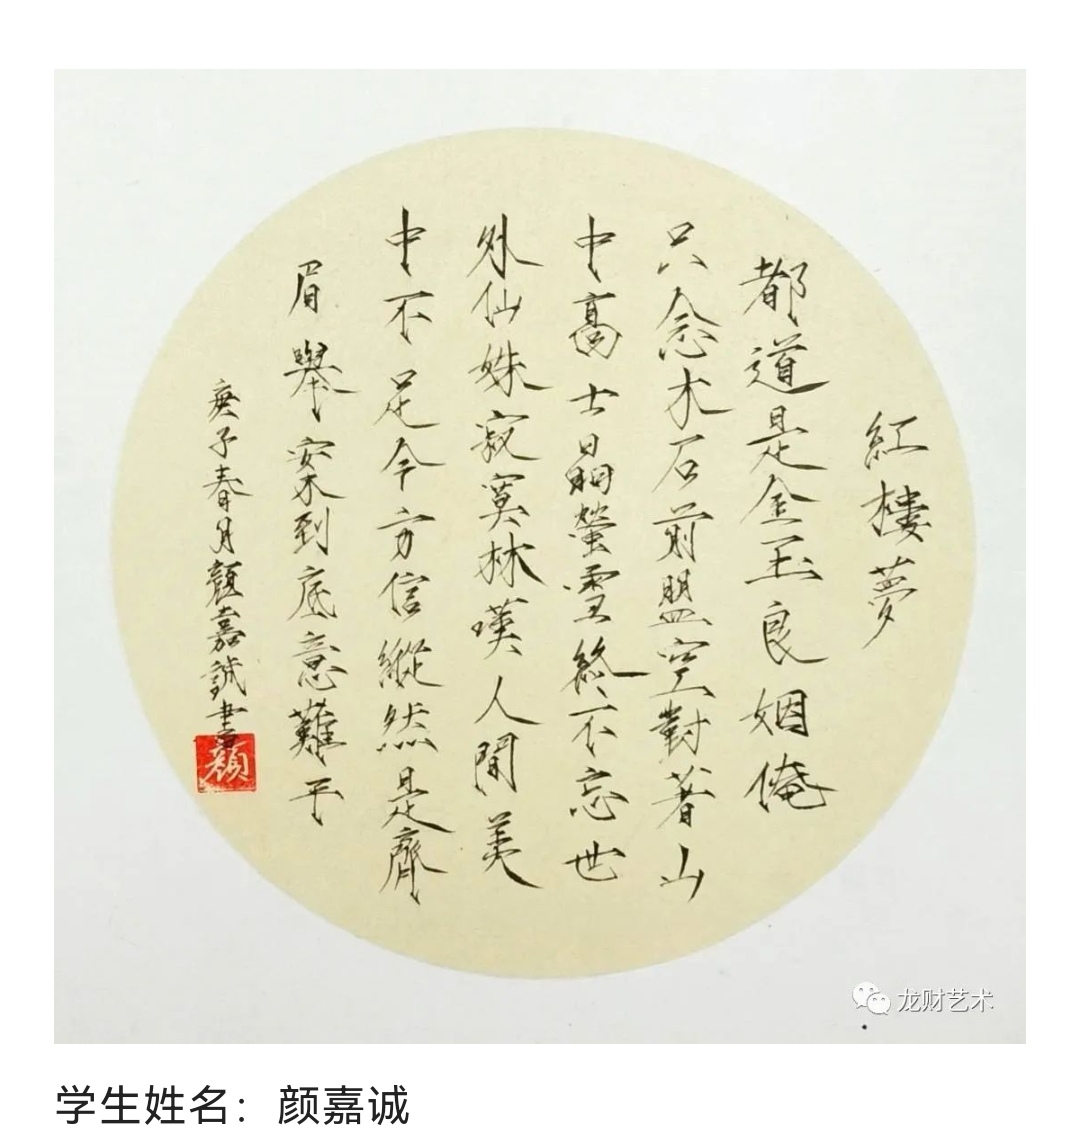 紅樓夢
都道是金玉良姻俺
只念木石前盟空對著山
中高士晶螢雪終不忘世
外仙姝寂寞林嘆人間美
中不足今方信縱然是齊
眉舉案到底意難平
庚子春月顏嘉誠書
顏
龙财艺术
学生姓名：颜嘉诚